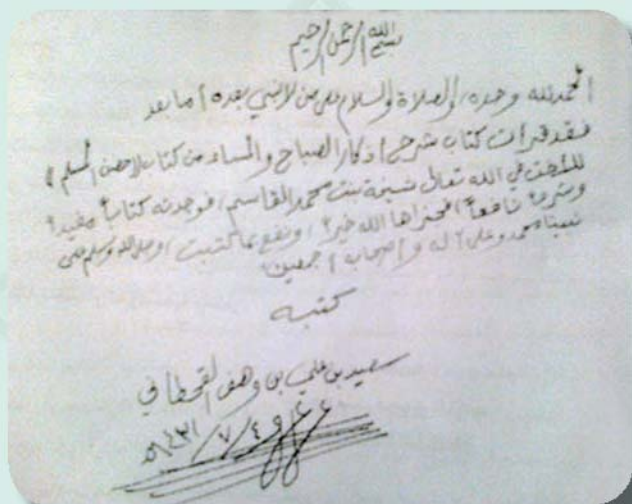 بسم الله الرحمن الرحيم
الحمد لله وحده، والصلاة والسلام على من لا نبي بعده أما بعد
فقد قرأت كتاب شرح أذكار الصباح والمساء من كتاب «حصن المسلم»
للأخت في الله تعالى نسيبة بنت محمد القاسم، فوجدته كتاباً مفيداً
وشرحاً نافعاً، فجزاها الله خيراً، ونفع بما كتبت، وصلى الله وسلم على
نبينا محمد وعلى آله وأصحابه أجمعين
كتبه
سعيد بن علي بن وهف القحطاني